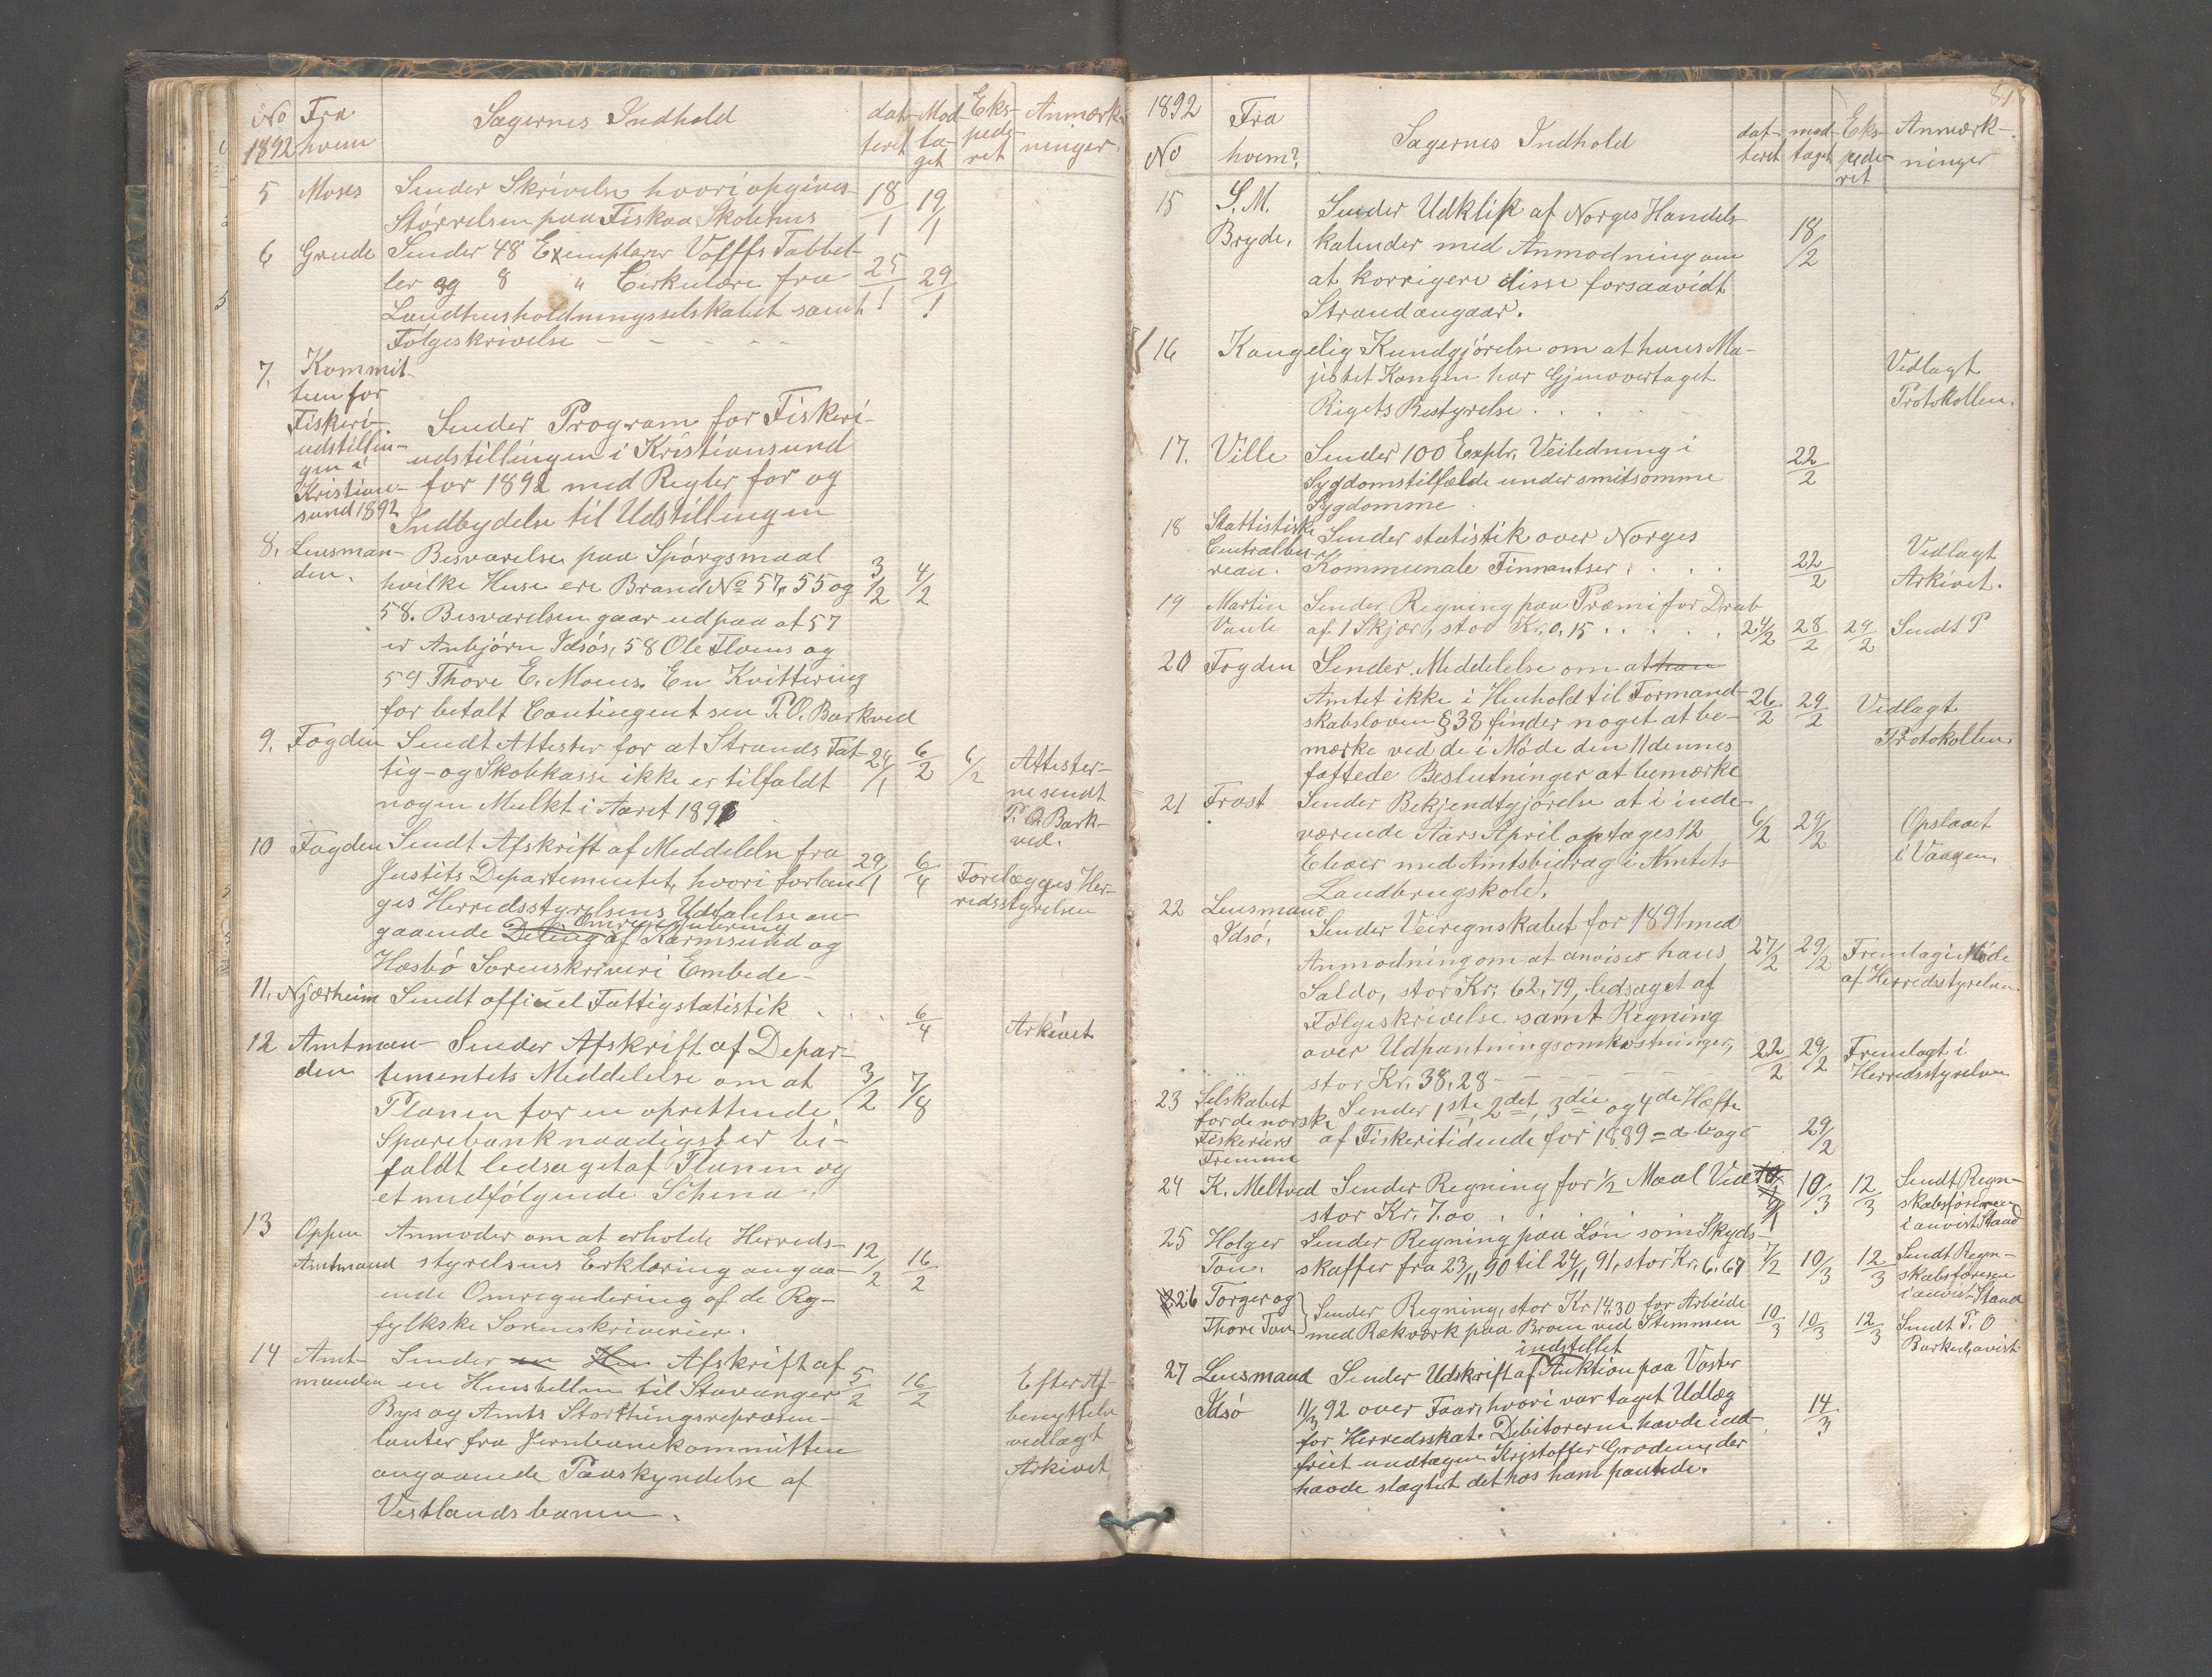 No Fra Sagernes Indhold dat- Mod- Eks- Anmærk-
1892 hvem teret ta- pede- ninger.
get ret
5 Moses Sender Skrivelse hvori opgives 18/1 19/1
Størrelsen paa Fiskaa Skolehus
6 Grude Sender 48 Exemplarer Volffs Tabbel-
ler og 8 " Cirkulære fra 25/1 29/1
Landhusholdningsselskabet samt
Følgeskrivelse - - - - -
7. Kommit-
teen for
Fiskeri- Sender Program for Fiskeri-
udstillin- udstillingen i Kristiansund
gen i
Kristian- for 1892 med Regler for og
sund 1892 Indbydelse til Udstillingen
8. Lensman- Besvarelse paa Spørgsmaal
den. hvilke Huse ere Brand No 57, 55 og 3/2 4/2
58. Besvarelsen gaar ud paa at 57
er Anbjørn Idsøs, 58 Ole Floens og
59 Thore E. Moens. En Kvittering
for betalt Contingent sen P. O. Barkved
9. Fogden Sendt Attester for at Strands Fat- 24/1 6/2 6/2 Attester-
tig- og Skolekasse ikke er tilfaldt ne sendt
nogen Mulkt i Aaret 1891 P. O. Bark-
ved.
10 Fogden Sendt Afskrift af Meddelelse fra 29/1 6/4
Justits Departementet, hvori forlan- Forelægges Her-
ges Herredsstyrelsens Udtalelse an- redsstyrelsen
Omregulering
gaaende Deling af Karmsund og
Hesbø Sorenskriveri Embede -
11. Njærheim Sendt officiel Fattigstatistik . . . 6/4 Arkivet
12 Amtman- Sender Afskrift af Depar-
den tementets Meddelelse om at 3/2 7/8
Planen for en oprettende
Sparebank naadigst er bi-
faldt ledsaget af Planen og
et medfølgende Schema.
13 Oppen Anmoder om at erholde Herreds- 12/2 16/2
Amtmand styrelsens Erklæring angaa-
ende Omregulering af de Ry-
fylkske Sorenskriverier.
14 Amt- Sender en Hen Afskrift af 5/2 16/2 Efter Af-
manden en Henstellen til Stavanger benyttelse
Bys og Amts Storthingsrepræsen- vedlagt
tanter fra Jernbanekommitteen Arkivet
angaaende Paaskyndelse af
Vestlandsbanen.
1892 Fra Sagernes Indhold dat- mod- Eks- Anmærk-
No hvem? teret taget pede- ninger
ret
15 S. M. Sender Udklip af Norges Handels-
Bryde. kalender med Anmodning om 18/2
at korrigere disse forsaavidt
Strand angaar.
16 Kongelig Kundgjørelse om at hans Ma-
jestet Kongen har Gjenovertaget Vedlagt
Rigets Bestyrelse . . . . Protokollen.
17. Ville Sender 100 Explr. Veiledning i 22/2
Sygdomstilfælde under smitsomme
Sygdomme
18 Stattistiske Sender statistik over Norges
Centralbu- Kommunale Finnantser . . . . 22/2 Vedlagt
reau. Arkivet.
19 Martin Sender Regning paa Præmi for Drab
Vaule af 1 Skjær, stor Kr. 0,15 . . . . . 24/2 28/2 29/2 Sendt P
20 Fogden Sender Meddelelse om at han
Amtet ikke i Henhold til Formand- 26/2 29/2 Vedlagt
skabsloven § 38 finder noget at be-
mærke ved de i Møde den 11 dennes Protokollen.
fattede Beslutninger at bemærke
21 Frost Sender Bekjendtgjørelse at i inde-
værende Aars April optages 12 6/2 29/2 Opslaaet
Elever med Amtsbidrag i Amtets i Vaagen.
Landbrugskole.
22 Lensmand Sender Veiregnskabet for 1891 med
Idsø. Anmodning om at anvises hans 27/2 29/2 Fremlagt i Møde
Saldo, stor Kr. 62,79, ledsaget af af Herredsstyrelsen.
Følgeskrivelse samt Regning
over Udpantningsomkostninger, 22/2 29/2 Fremlagt i
stor Kr. 38,28 - - - - - Herredsstyrelsen
23 Selskabet Sender 1ste, 2det, 3die og 4de Hæfte
for de norske
Fiskeriers af Fiskeritidende for 1889 29/2
Fremme
24 K. Meltved Sender Regning for 1/2 Maal Ved 10/3 12/3 Sendt Regn-
stor Kr. 7.00 . . . . skabsføreren
i anvist Stand
25 Holger Sender Regning paa Løn som Skyds- Sendt Regn-
Tou. skaffer fra 23/11 90 til 24/11 91, stor Kr. 6.67 7/2 10/3 12/3 skabsføreren
i anvist Stand
26 Torger og Sender Regning, stor Kr 14.30 for Arbeide
Thore Tou med Rækværk paa Broen ved Stemmen 10/3 10/3 12/3 Sendt P. O
indstillet Barkved, avist
27 Lensmand Sender Udskrift af Auktion paa Voster
Idsø 11/3 92 over Faar, hvori var taget Udlæg 14/3
for Herredsskat. Debitorerne havde ind-
friet undtagen Kristoffer Grøden, der
havde slagtet det hos ham pantede.